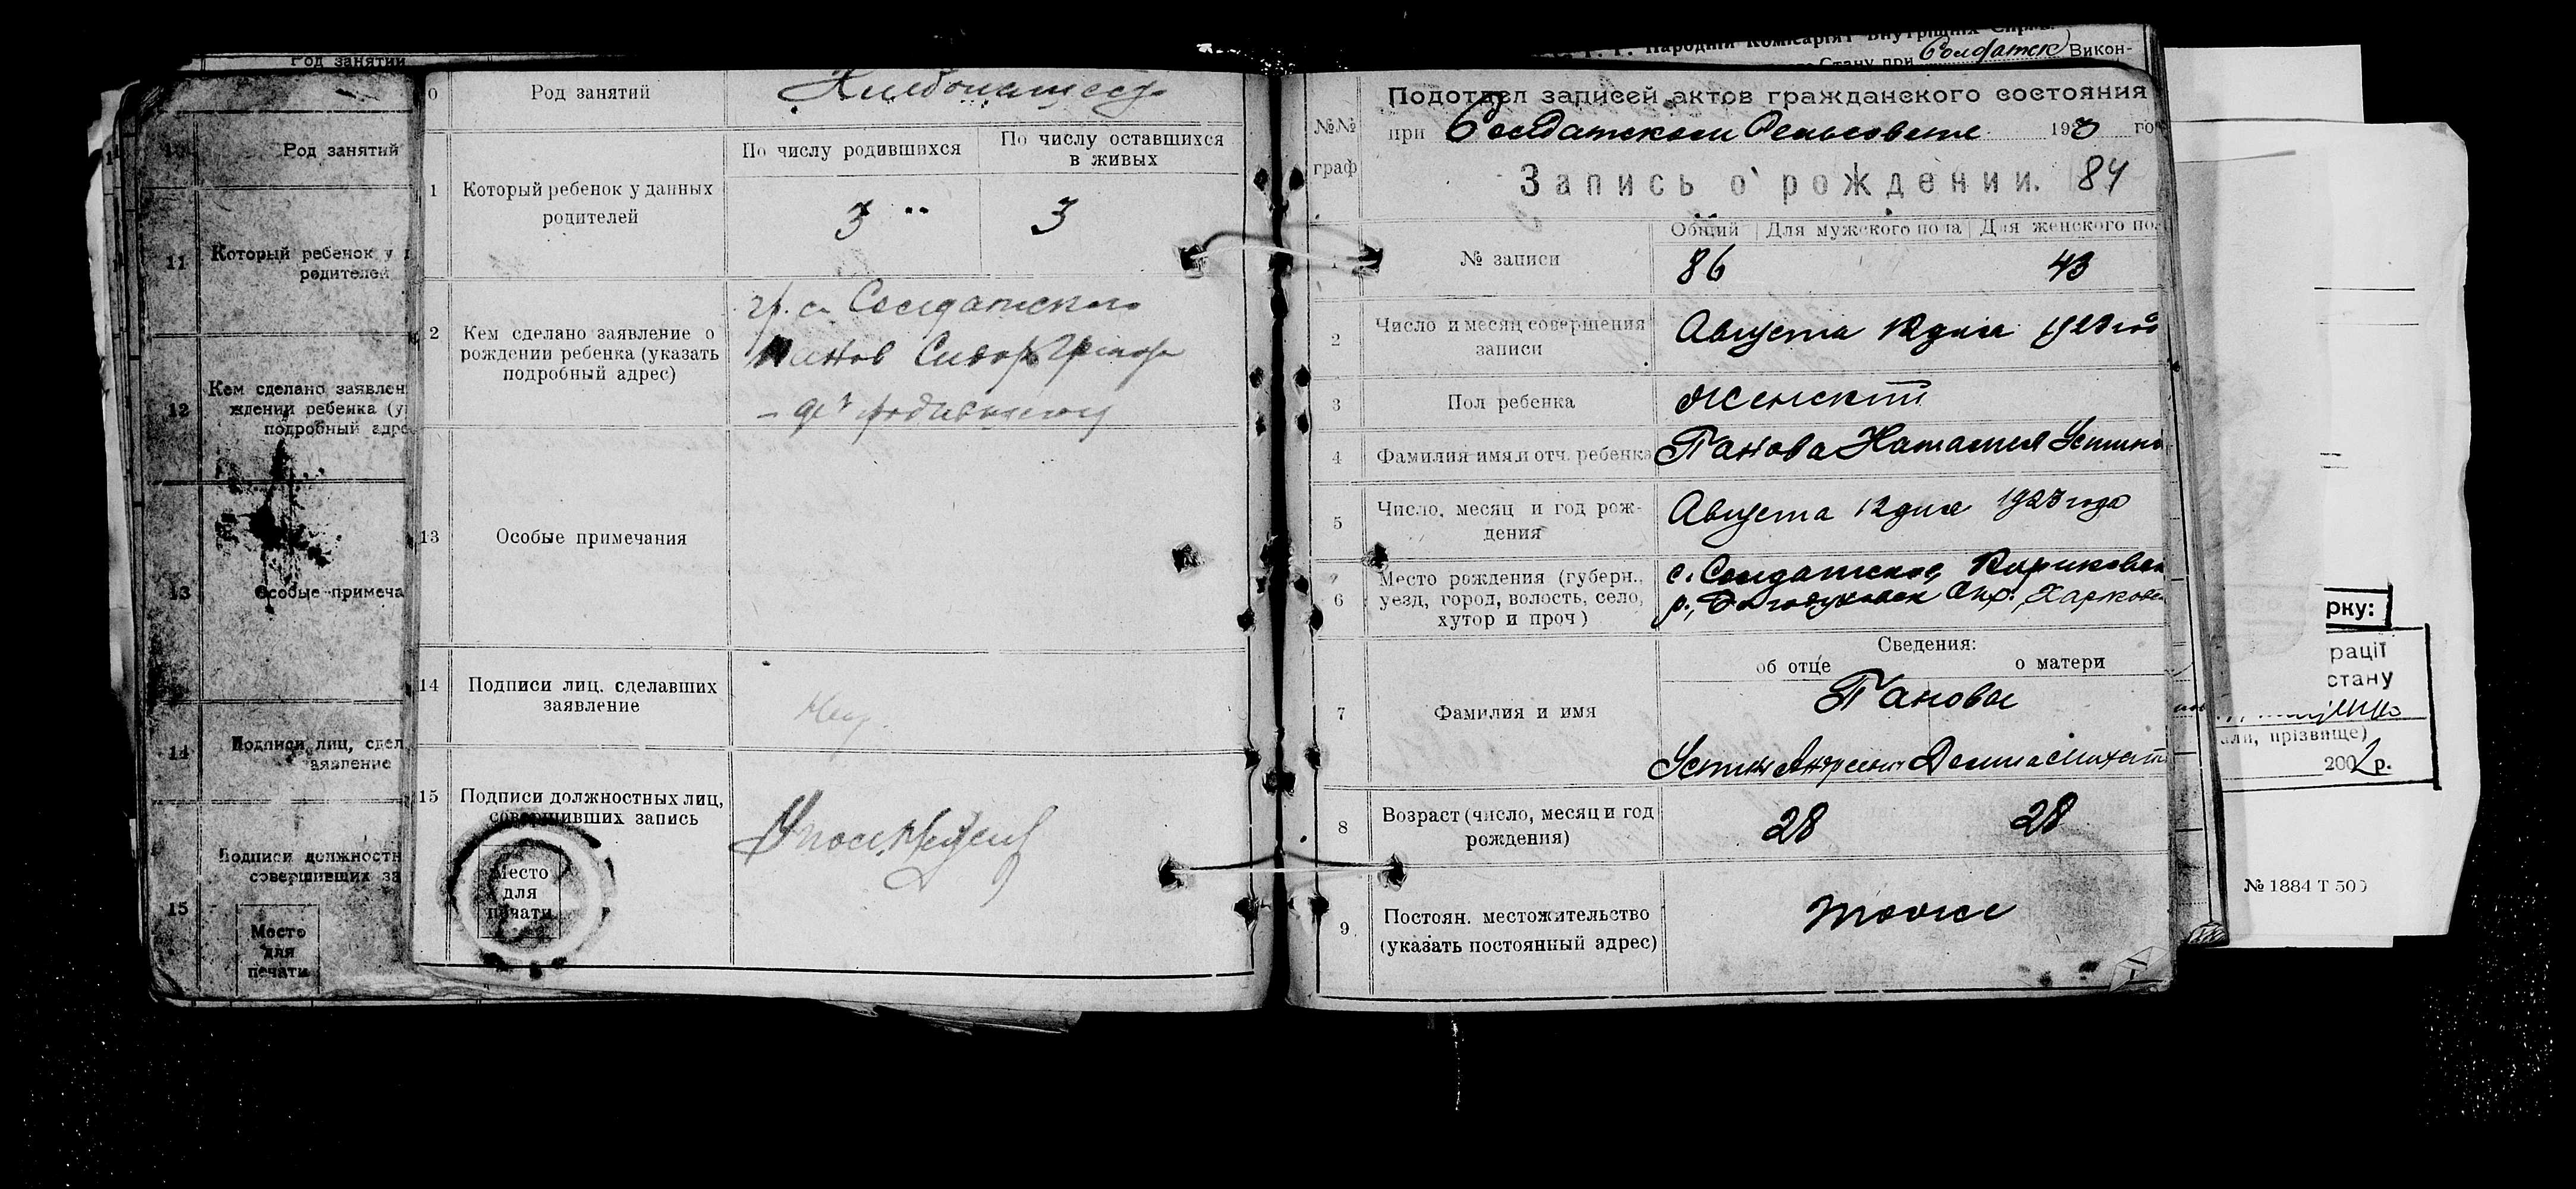 Род занятий
10
Род занятий
11
Который ребенок у
родителей
12
Кем сделано заявлен
ждении ребенка (у
подробный адре
13
Особые примеча
14
Подписи лиц, сдел
аявление
15
Подписи должностн
совершивших за
Место
для
печати
0
Род занятий
1
Который ребенок у данных
родителей
По числу родившихся
По числу оставшихся
в живых
3
3
2
Кем сделано заявление о
рождении ребенка (указать
подробный адрес)
гр. с. Солдатского
Панов
13
Особые примечания
14
Подписи лиц, сделавших
заявление
15
Подписи должностных лиц,
совершивших запись
Место
для
печати
Народній Комісаріят Внутрішніх Справ
Стану при Солдатск Викон-
Подотдел записей актов гражданского состояния
при Солдатском Сельсовете 1923 го
№№
граф
Запись о рождении. 84
Общий Для мужского пола Для женского по
1
№ записи
86 43
2
Число и месяц совершения
записи
Августа 12 дня 1923 го
3
Пол ребенка
Женский
4
Фамилия имя и отч. ребенка
Панова Наталия Устино
5
Число, месяц и год рож-
дения
Августа 12 дня 1923 года
6
Место рождения (губерн.,
уезд, город, волость, село,
хутор и проч)
с. Солдатское, Кириковск
р., Богодуховск Окр. Харьков
Сведения:
об отце о матери
7
Фамилия и имя
Пановы
Устин Андреевич
8
Возраст (число, месяц и год
рождения)
28 28
9
Постоян. местожительство
(указать постоянный адрес)
тоже
рку:
рації
стану
али, прізвище)
2002 р.
№ 1884 Т 500